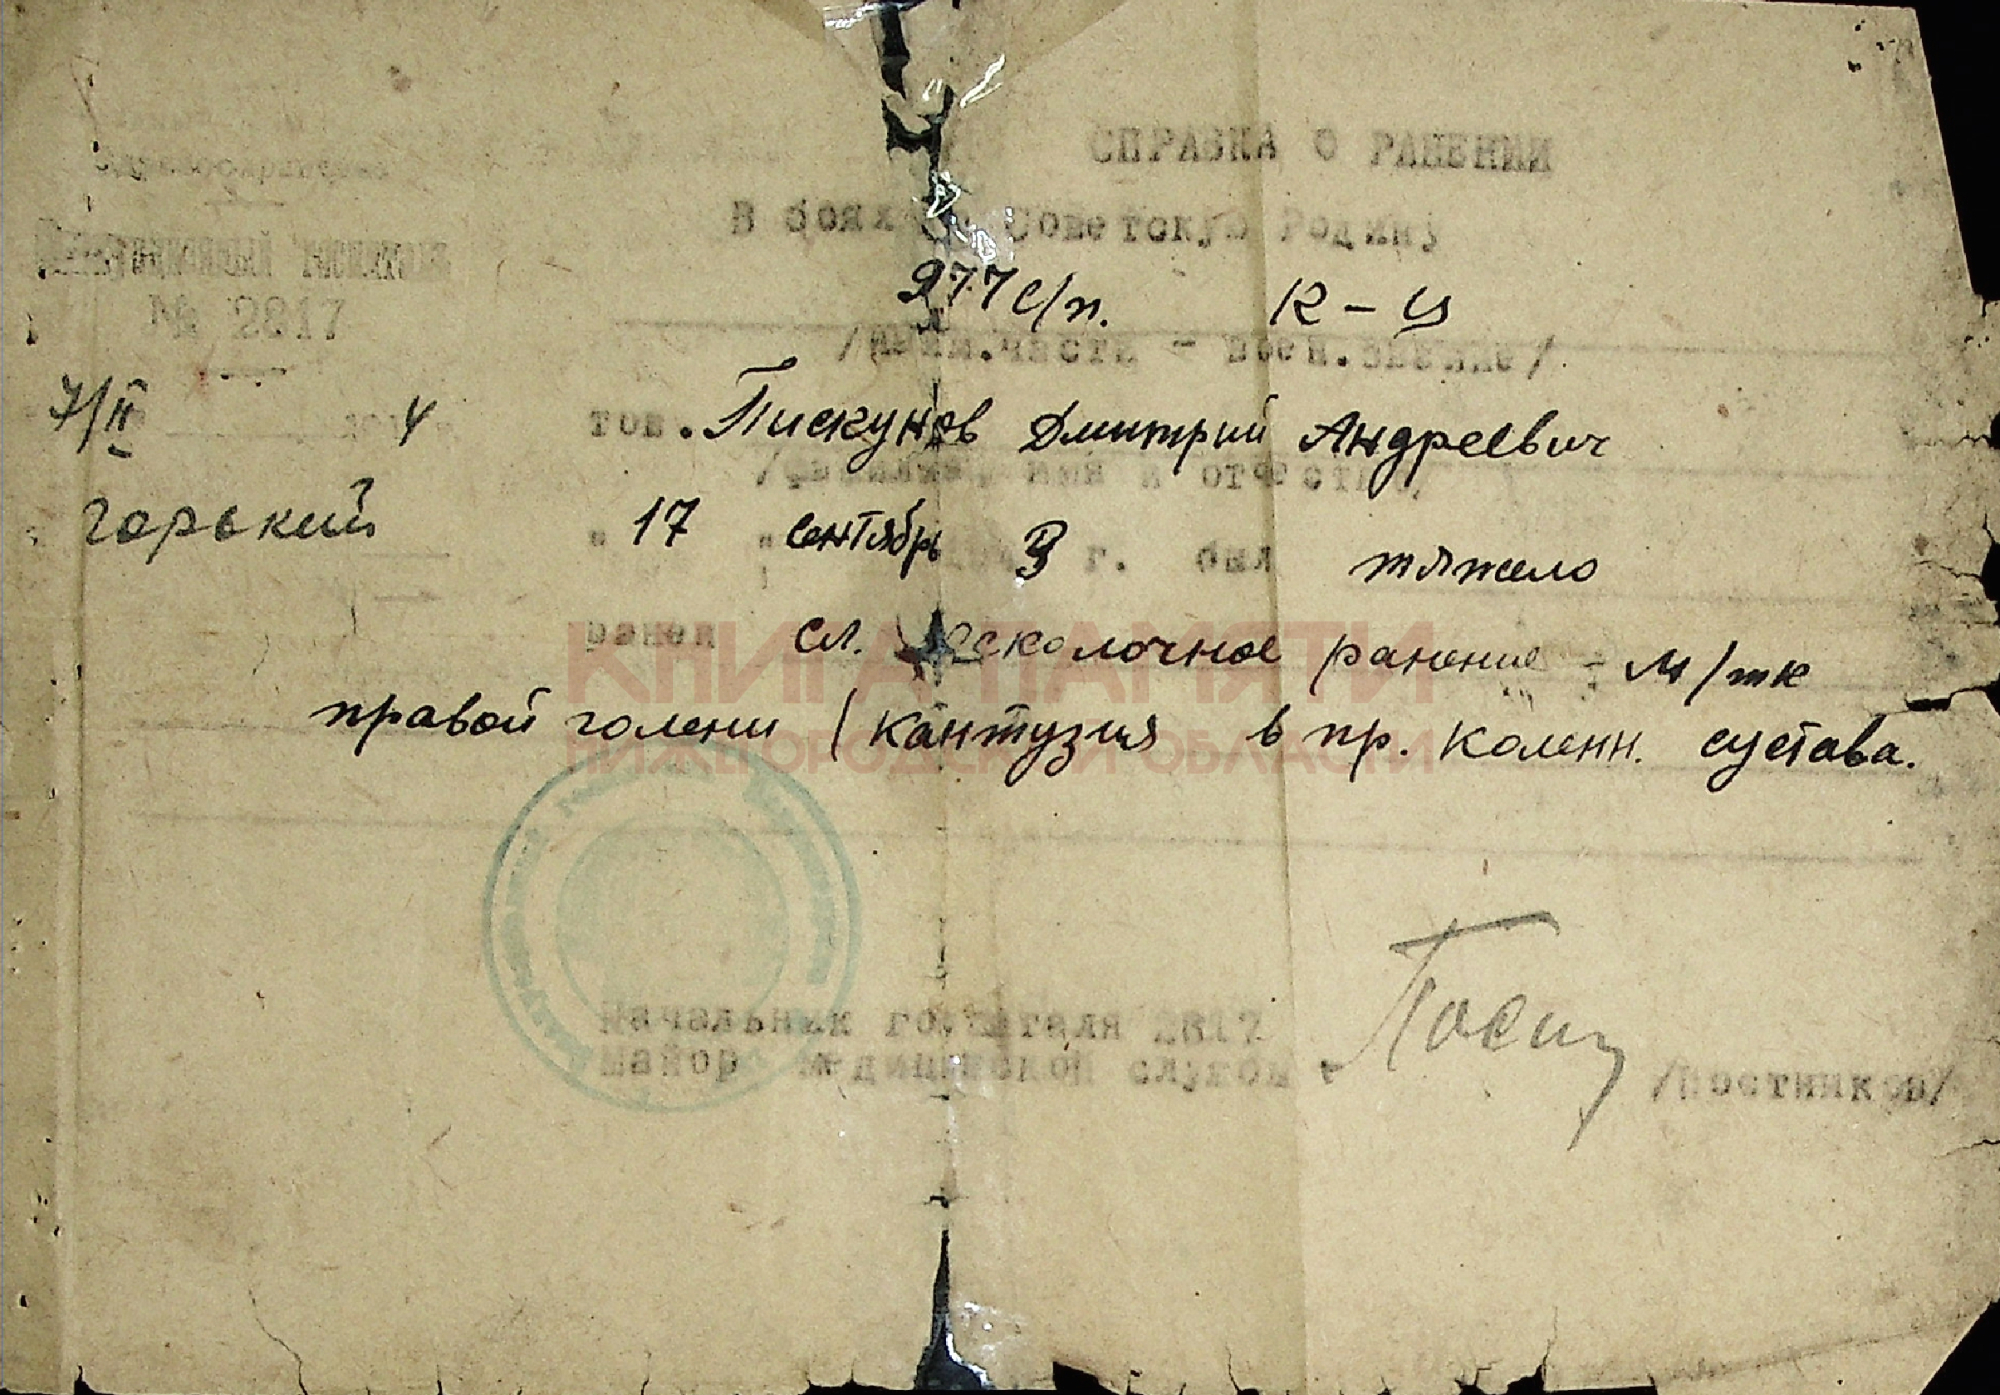 Здравоохранения
Эвакуационный госпиталь
№ 2817
7/II 194 4
Горький
СПРАВКА О РАНЕНИИ
В боях за Советскую Родину
977 с/п. к-ц
/наим.части - воен.звание/
тов. Пискунов Дмитрий Андреевич
/фамилия, имя и отчество/
" 17 " сентябрь 3 г. был тяжело
ранен сл. осколочное ранение - м/тк
правой голени / кантузия в пр. коленн. сустава.
КНИГА ПАМЯТИ
НИЖЕГОРОДСКОЙ ОБЛАСТИ
Начальник госпиталя 2817
майор медицинской службы /Постников/